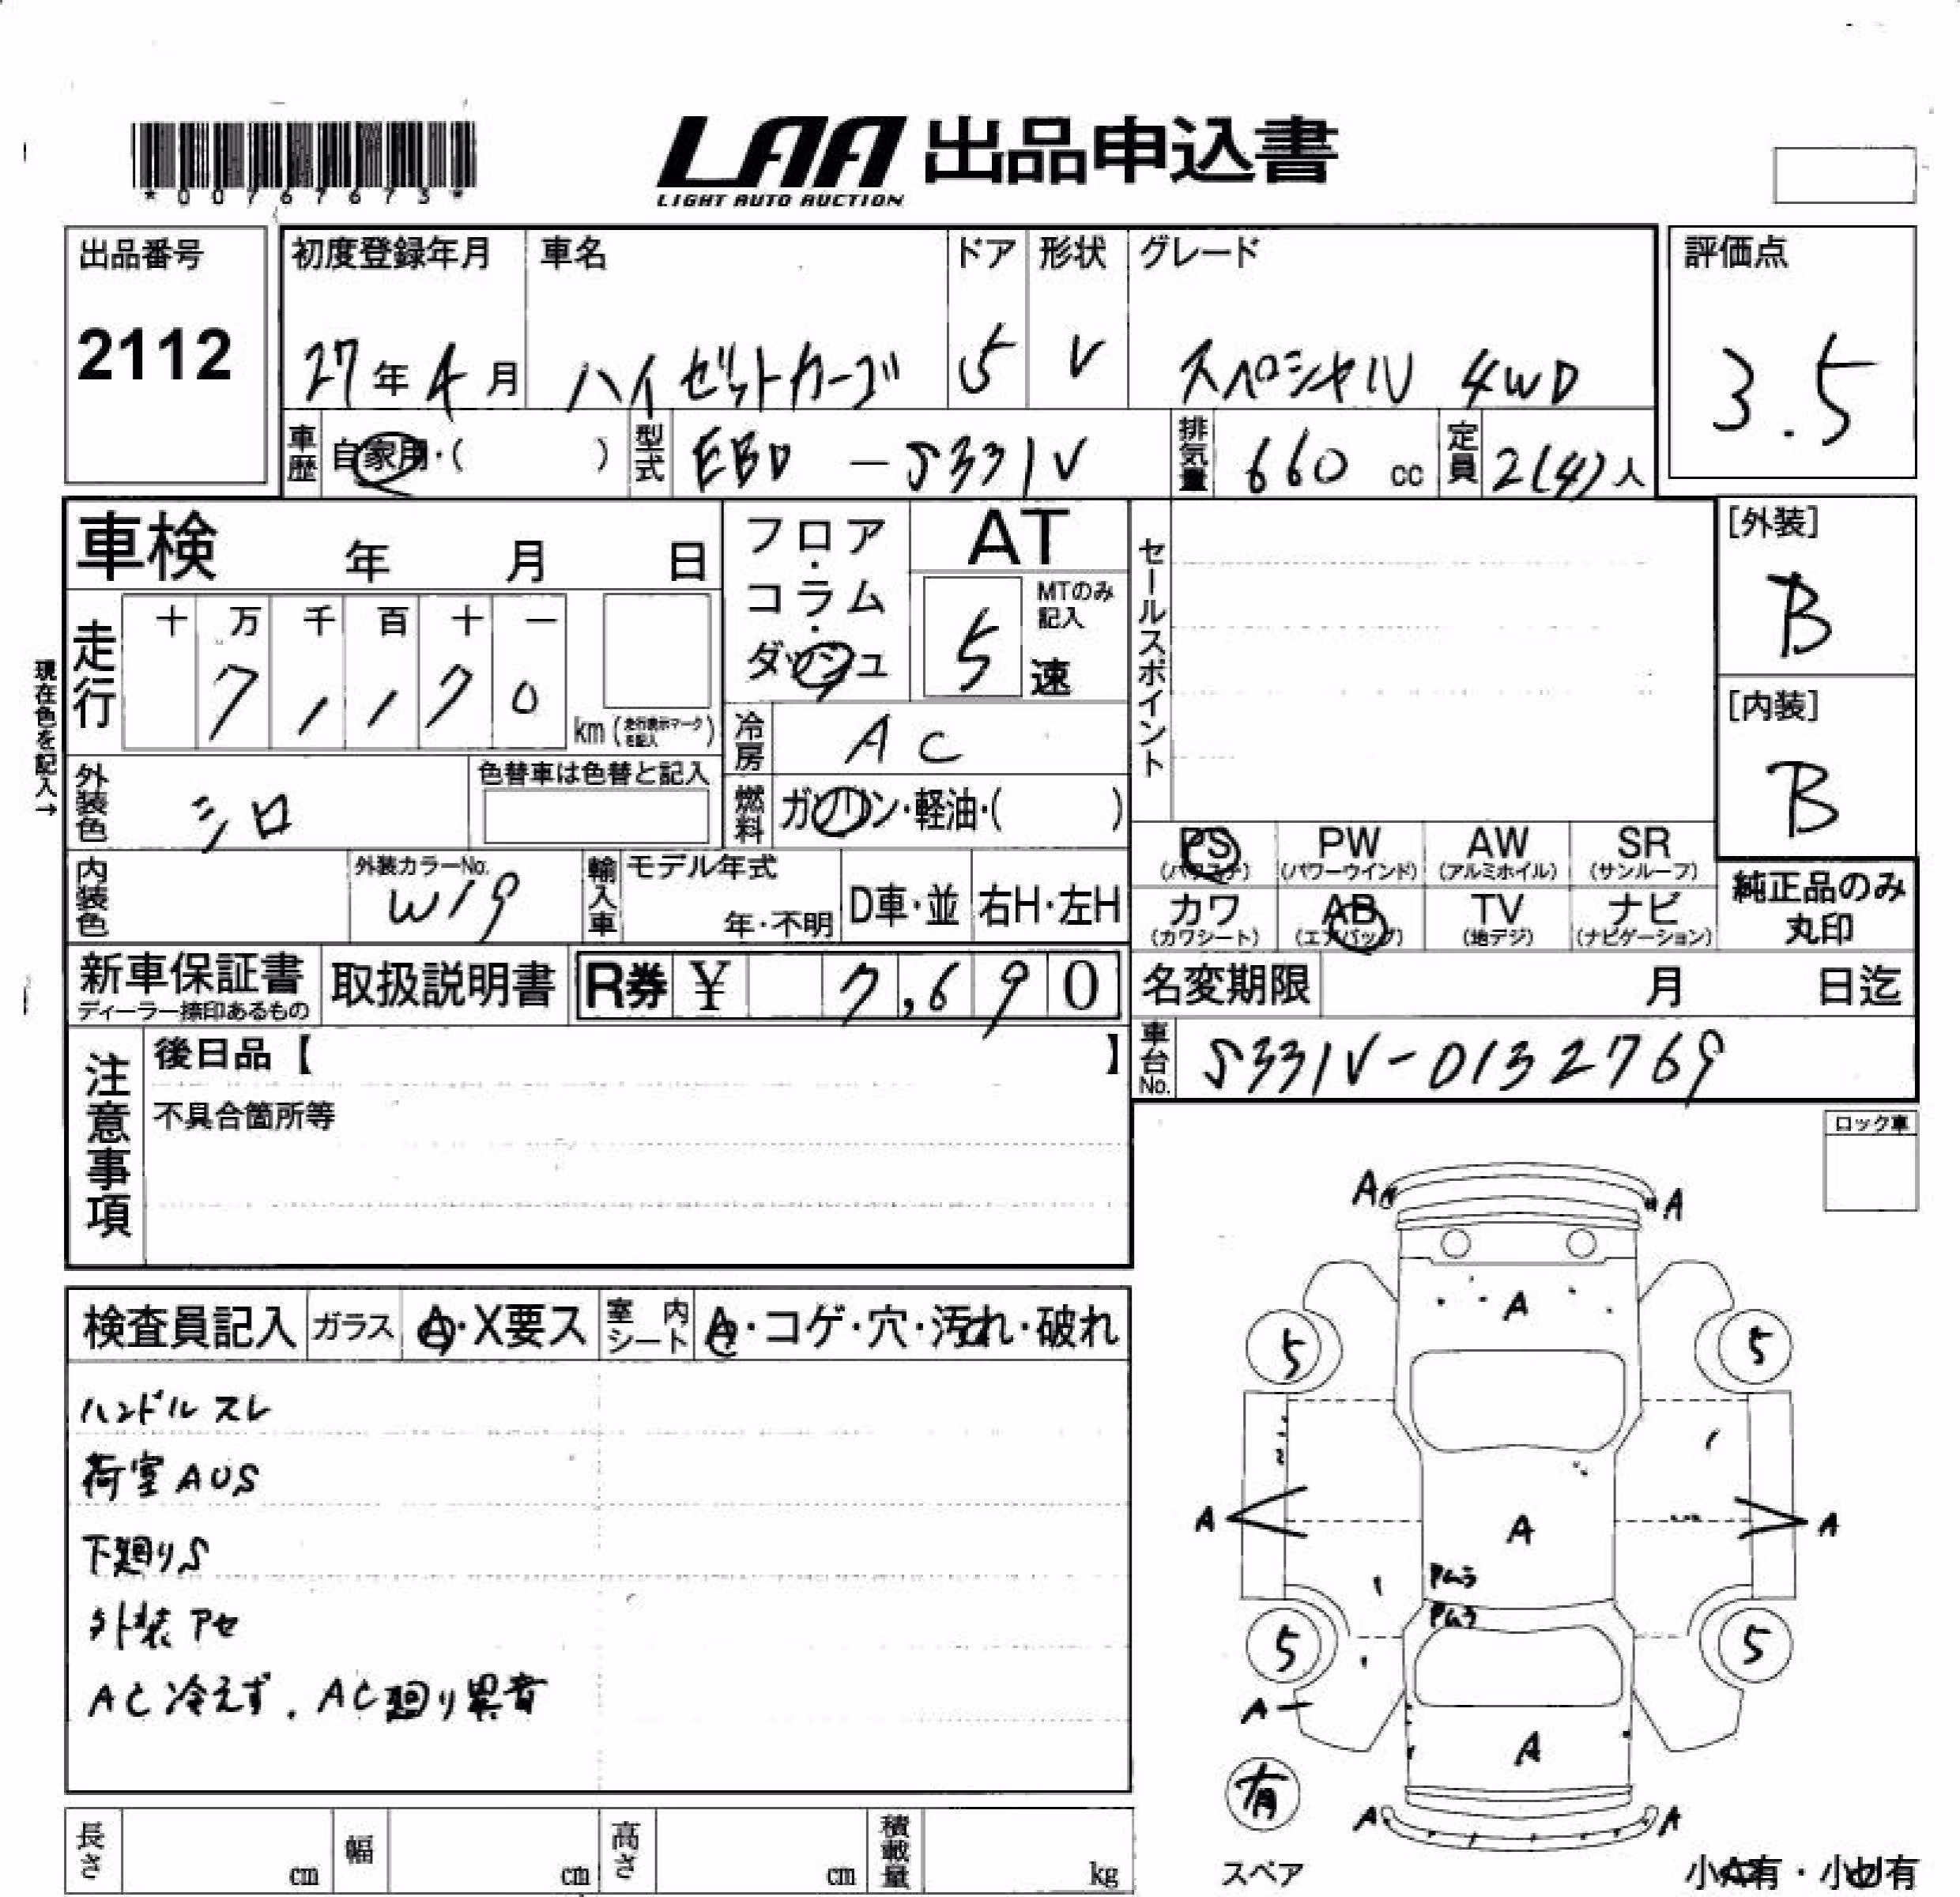 *00767673*
LAA 出品申込書
LIGHT AUTO AUCTION
出品番号 初度登録年月 車名 ドア 形状 グレード 評価点
2112 27年4月 ハイゼットカーゴ 5 V スペシャル 4WD 3.5
車歴 自家用・( ) 型式 EBD-S331V 排気量 660 cc 定員 2(4)人
車検 年 月 日 フロア・コラム・ダッシュ AT セールスポイント [外装]
B
MTのみ記入
5 速
走行 十 万 千 百 十 一
7 1 1 7 0
km (走行表示マークを記入)
現在色を記入→
[内装]
B
冷房 AC
外装色 シロ 色替車は色替と記入 燃料 ガソリン・軽油・( )
PS PW AW SR
(パワステ) (パワーウインド) (アルミホイル) (サンルーフ)
カワ AB TV ナビ
(カワシート) (エアバッグ) (地デジ) (ナビゲーション)
純正品のみ
丸印
内装色 外装カラーNo. W19 輸入車 モデル年式 年・不明 D車・並 右H・左H
新車保証書 取扱説明書 R券 ¥ 7,690 名変期限 月 日迄
ディーラー捺印あるもの
注意事項 後日品【 】 車台No. S331V-0132769
不具合箇所等
ロック車
検査員記入 ガラス A・X要ス 室内シート A・コゲ・穴・汚れ・破れ
ハンドルスレ
荷室AUS
下廻りS
外装アセ
AC冷えず. AC廻り異音
A A
A
5 5
A A A
Pムラ
Pムラ
5 5
A
A
有
A A
スペア
小A有・小U有
長さ cm 幅 cm 高さ cm 積載量 kg